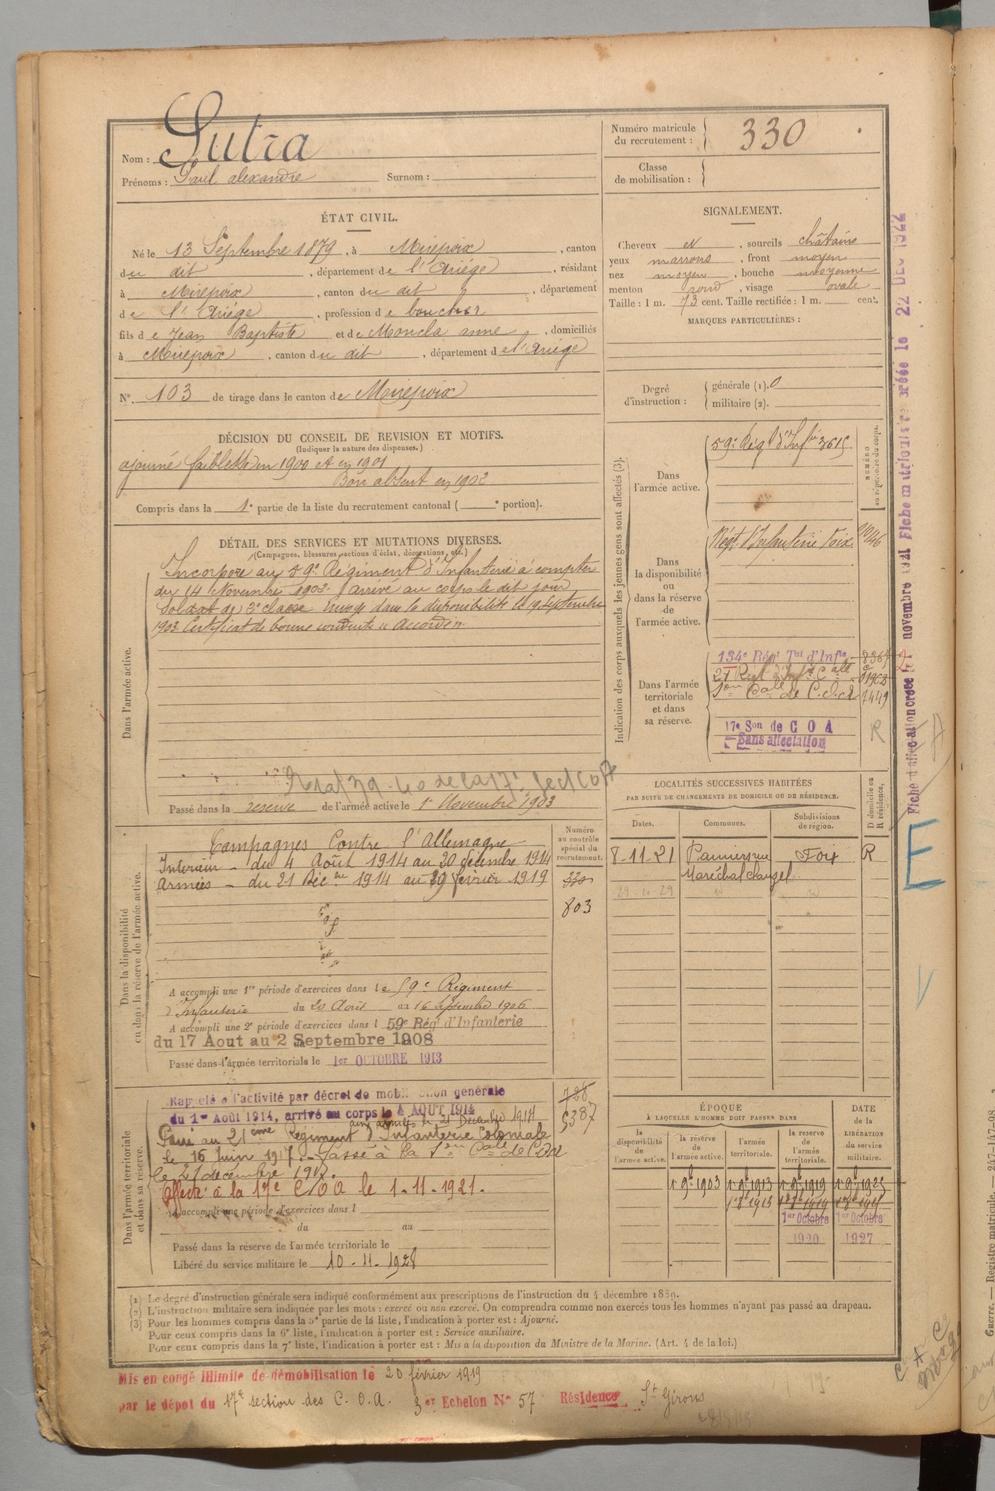 Nom : Sutra
Prénoms : Paul alexandre Surnom :
Numéro matricule du recrutement : 330
Classe de mobilisation :
ÉTAT CIVIL.
Né le 13 Septembre 1879, à Mirepoix, canton
du dit, département de l'Ariége, résidant
à Mirepoix, canton du dit, département
de l'Ariége, profession de boucher
fils de Jean Baptiste et de Moncla anne, domiciliés
à Mirepoix, canton du dit, département de l'Ariège
N° 103 de tirage dans le canton de Mirepoix
SIGNALEMENT.
Cheveux et, sourcils châtains
yeux marrons, front moyen
nez moyen, bouche moyenne
menton rond, visage ovale
Taille : 1 m. 73 cent. Taille rectifiée : 1 m. cent.
MARQUES PARTICULIÈRES :
Degré d'instruction :
générale (1). 0
militaire (2).
DÉCISION DU CONSEIL DE REVISION ET MOTIFS.
(Indiquer la nature des dispenses.)
ajourné faiblesse en 1900 et en 1901
Bon absent en 1902
Compris dans la 1e partie de la liste du recrutement cantonal ( e portion).
DÉTAIL DES SERVICES ET MUTATIONS DIVERSES.
(Campagnes, blessures, actions d'éclat, décorations, etc.)
Dans l'armée active.
Incorporé au 59e Régiment d'Infanterie à compter
du 14 Novembre 1902. arrivé au corps le dit jour
Soldat de 2e classe. Envoyé dans la disponibilité le 19 Septembre
1903 Certificat de bonne conduite "Accordé".
de la 17e sect COA
Passé dans la réserve de l'armée active le 1er Novembre 1903
Indication des corps auxquels les jeunes gens sont affectés (3).
NUMÉRO au répertoire du corps.
Dans l'armée active.
59e Régt d'Infie 3615
Dans la disponibilité ou dans la réserve de l'armée active.
Régt d'Infanterie Foix
Dans l'armée territoriale et dans sa réserve.
134e Régt Tal d'Infie
17e Son de C O A
Sans affectation
R
LOCALITÉS SUCCESSIVES HABITÉES
PAR SUITE DE CHANGEMENTS DE DOMICILE OU DE RÉSIDENCE.
Dates. Communes. Subdivisions de région. D domicile ou R résidence.
8-11-21 Pamiers rue Foix R
Maréchal clauzel
29-4-29
Dans la disponibilité ou dans la réserve de l'armée active.
Numéro au contrôle spécial du recrutement.
Campagnes Contre l'Allemagne
Intérieur - du 4 Août 1914 au 20 décembre 1914
Armées - du 21 Déc.bre 1914 au 19 février 1919
330
803
A accompli une 1re période d'exercices dans le 59e Régiment
d'Infanterie du 20 Août au 16 Septembre 1906
A accompli une 2e période d'exercices dans l 59e Régt d'Infanterie
du 17 Aout au 2 Septembre 1908
Passé dans l'armée territoriale le 1er OCTOBRE 1913
Dans l'armée territoriale et dans sa réserve.
Rappelé à l'activité par décret de mobilisation générale
du 1er Août 1914, arrivé au corps le 4 AOUT 1914
aux armées le 21 Décembre 1914
Passé au 21eme Régiment d'Infanterie Coloniale
le 16 Juin 1917. Passé à la
le 21 décembre 1917.
Affecté à la 17e C O A le 1-11-1921.
A accompli une période d'exercices dans l
du au
Passé dans la réserve de l'armée territoriale le
Libéré du service militaire le 10-11-1928
5387
ÉPOQUE
À LAQUELLE L'HOMME DOIT PASSER DANS
la disponibilité de l'armée active. la réserve de l'armée active. l'armée territoriale. la réserve de l'armée territoriale.
DATE de la LIBÉRATION du service militaire.
1er Octobre 1er Octobre
1920 1927
(1) Le degré d'instruction générale sera indiqué conformément aux prescriptions de l'instruction du 4 décembre 1889.
(2) L'instruction militaire sera indiquée par les mots : exercé ou non exercé. On comprendra comme non exercés tous les hommes n'ayant pas passé au drapeau.
(3) Pour les hommes compris dans la 5e partie de la liste, l'indication à porter est : Ajourné.
Pour ceux compris dans la 6e liste, l'indication à porter est : Service auxiliaire.
Pour ceux compris dans la 7e liste, l'indication à porter est : Mis à la disposition du Ministre de la Marine. (Art. 4 de la loi.)
Mis en congé illimité de démobilisation le 20 février 1919
par le dépôt du 17e section des C. O. A. 3er Echelon N° 57 Résidence St Girons
E